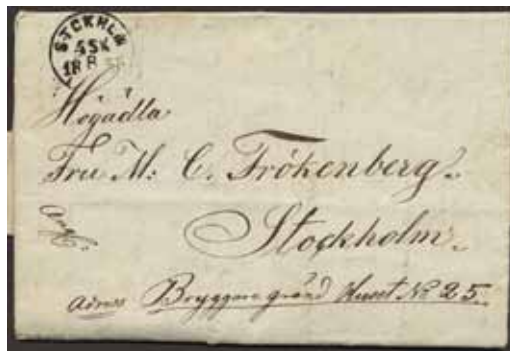 STCKHLM
4 SK
18 8
Högädla
Fru M: C. Frökenberg.
Stockholm.
adress Bryggare gränd Huset No 25.